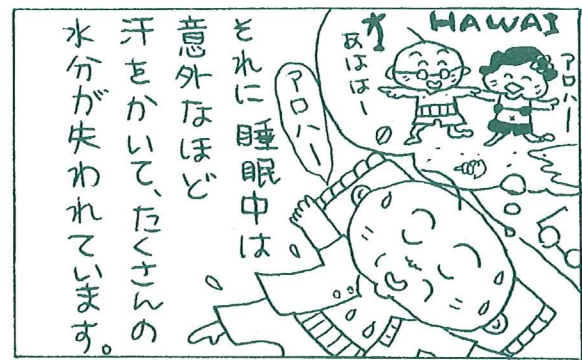 HAWAI
アロハー
あははー
アロハー
それに睡眠中は
意外なほど
汗をかいて、たくさんの
水分が失われています。